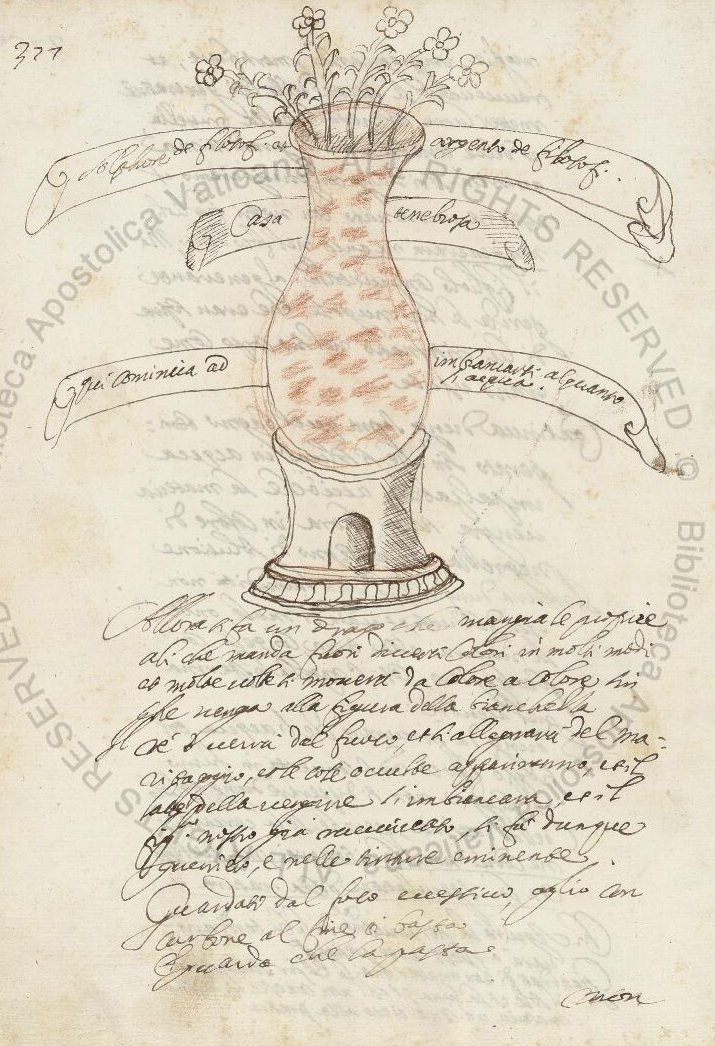 377
Solphore de filosofi et argento de filosofi.
Casa tenebrosa
Qui comincia ad imbiancarsi alquanto
l'acqua.
Allora si fa un drago che mangia le proprie
ali che manda fuori diversi colori in molti modi
et molte volte si moverà da colore a colore sin
che venga alla figura della bianchella
del fuoco, et si allegrara del ma-
ritaggio, et le cose occulte appariranno, et il
latte della vergine s'imbiancara, et il
nostro già vivificato, si fa dunque
e nelle tinture eminente.
Guardati dal foco eccessivo, con
carbone al fine
che la passa
non
Biblioteca Apostolica Vaticana ALL RIGHTS RESERVED ©